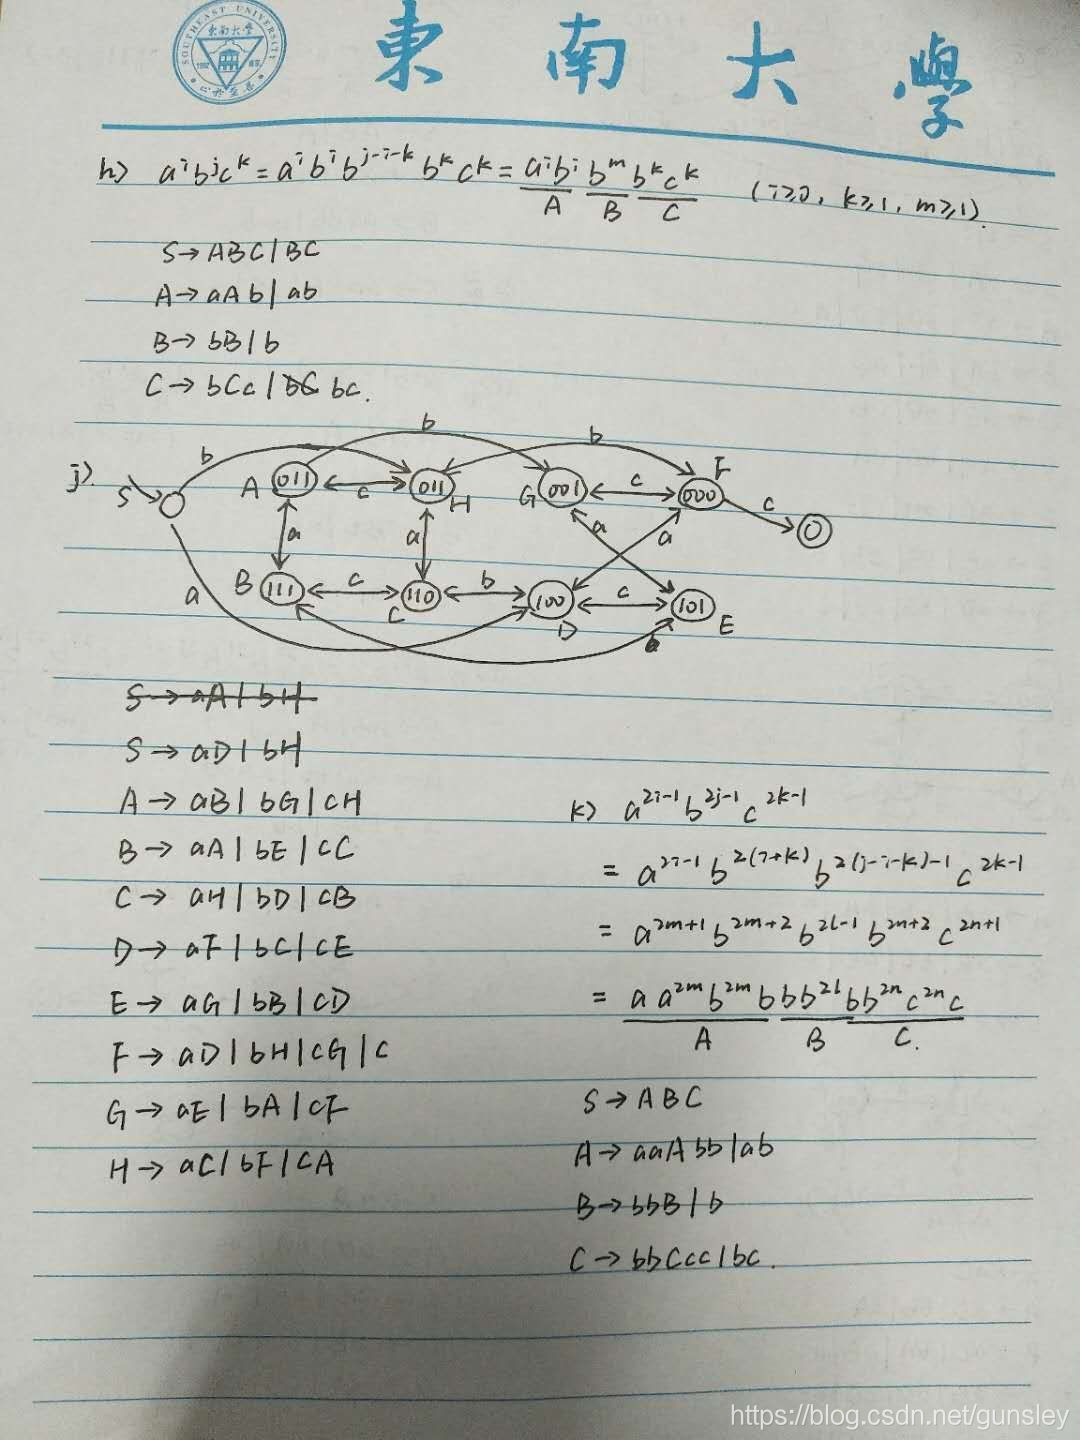 SOUTHEAST UNIVERSITY
東南大學
h) aⁱbʲcᵏ = aⁱbⁱb^{j-i-k}bᵏcᵏ = aⁱbⁱ b^m bᵏcᵏ (i≥0, k≥1, m≥1).
A B C
S→ABC|BC
A→aAb|ab
B→bB|b
C→bCc|bc.
j).
b b b
S A 011 c 011 H G 001 c 000 F c
a a a a
B 111 c 110 C b 100 D c 101 E
a b
S→aA|bH
S→aD|bH
A→aB|bG|cH
B→aA|bE|cC
C→aH|bD|cB
D→aF|bC|cE
E→aG|bB|cD
F→aD|bH|cG|c
G→aE|bA|cF
H→aC|bF|cA
k) a^{2i-1}b^{2j-1}c^{2k-1}
= a^{2i-1}b^{2(i+k)}b^{2(j-i-k)-1}c^{2k-1}
= a^{2m+1}b^{2m+2}b^{2l-1}b^{2n+2}c^{2n+1}
= a a^{2m}b^{2m}b bb^{2l}bb^{2n}c^{2n}c
A B C.
S→ABC
A→aaAbb|ab
B→bbB|b
C→bbCcc|bc.
https://blog.csdn.net/gunsley